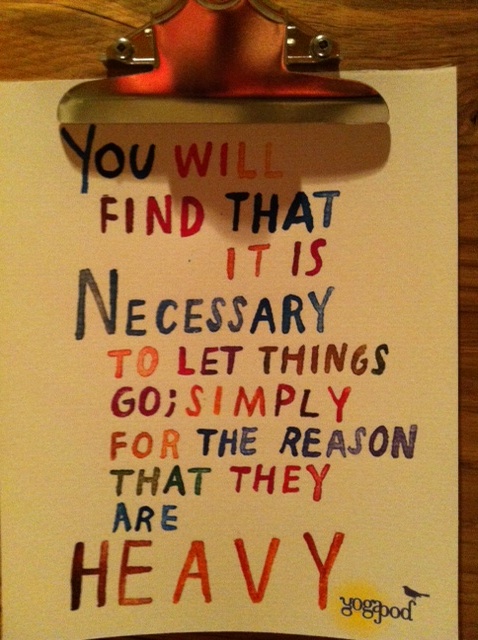 YOU WILL
FIND THAT
IT IS
NECESSARY
TO LET THINGS
GO; SIMPLY
FOR THE REASON
THAT THEY
ARE
HEAVY
yogapod